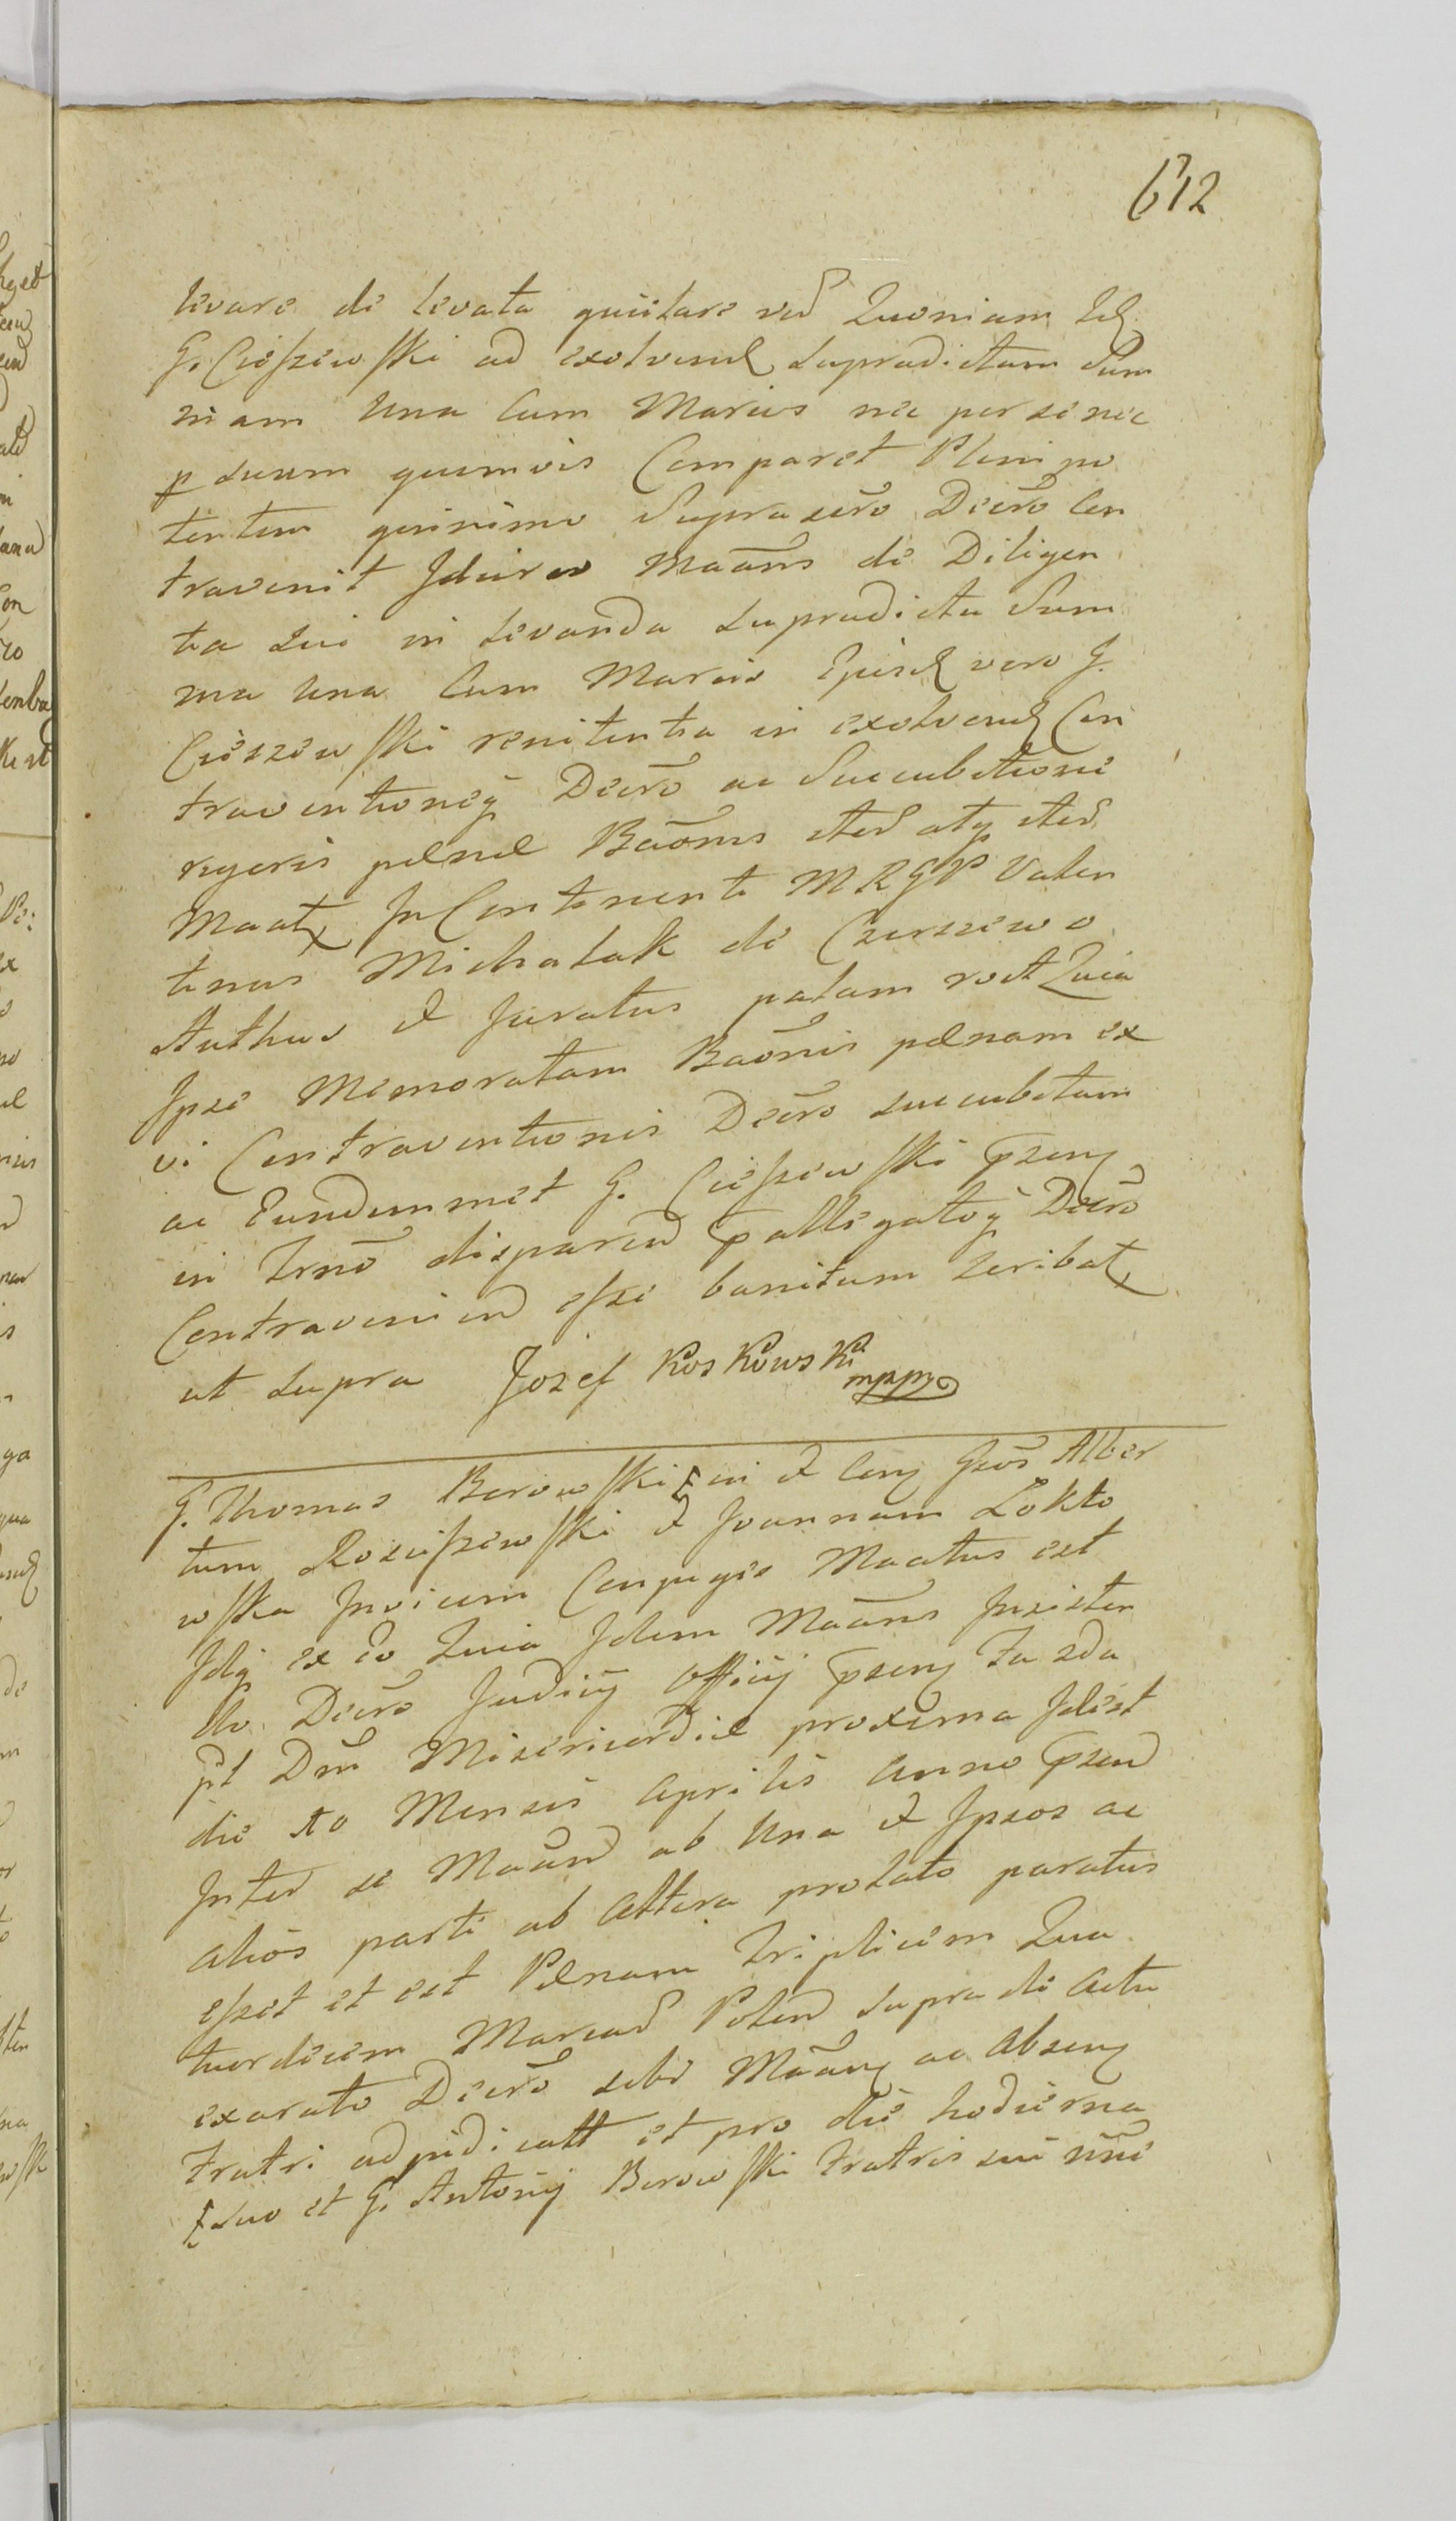 612
levare de levata quietare sed Quoniam Id
G. Cieszewski ad exolvend supradictam Sum
mam una Cum Marcis nec per se nec
p suum quemvis Comparet Plenipo
tentem quinimo Suprascro Decro Con
travenit Idcirco Maans de Diligen
tia sui in levanda supradicta Sum
ma una Cum Marcis Ejusd vero G.
Cieszewski renitentia in exolvend Con
traventioneq Decro ac Succubitione
rigoris pænæ Baonis sted atq sted
Maat In Continenti MRGP Valen
tinus Michalak de Czerszewo
Authus et Juratus palam rect Quia
Ipse Memoratam Baonis pænam ex
vi Contraventionis Decro succubitam
ac Eundemmet G. Cieszewski pseng
in Trno disparend p allegatoq Decro
Contraveniend esse banitum scribat
ut supra Jozef Koskowski mppa
G. Thomas Borowski in et Cong Gsos Alber
tum Rosciszewski et Joannam Lokto
wska Invicem Conjuges Maatus est
Idq ex eo Quia Idem Maans Insisten
do Decro Judicij Officij pseng Fa 2da
pt Dni Misericordiæ proxima Idest
die 10 Mensis Aprilis Anno psend
Inter se Maand ab Una et Ipsos ac
alios parte ab Altera prolato paratus
esset et est Pænam Triplicem Qua
tuordecim Marcad Polend supra de Actu
exarato Decro sibi Maang ac Abseng
Fratri adjudicatt et pro die hodierna
suo et G. Antonij Borowski Fratris sui nne